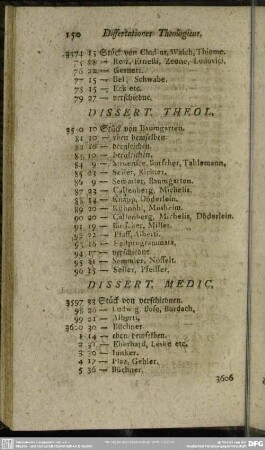 150 Dissertationes Theologicae.
3574 15 Stück von Clodius, Walch, Thieme.
75 28 — Ernesti, Zeune, Ludovici,
76 22 — Gesneri.
77 15 — Bel, Schwabe.
78 15 — Eck etc.
79 27 — verschiedne.
DISSERT. THEOL.
3580 10 Stück von Baumgarten.
81 10 — eben demselben
82 10 — dergleichen
83 10 — dergleichen
84 9 — Burscher, Tahlemann,
85 — Seiler, Richter,
86 9 — Semmler, Baumgarten.
87 22 — Callenberg, Michelis.
88 14 — Knapp, Döderlein.
89 20 — Mosheim.
90 20 — Callenberg, Michelis, Döderlein.
91 19 — Burscher, Miller.
92 — Pfaff, Alberti.
93 16 — Festprogrammata.
94 17 — verschiedne
95 — Semmler, Nösselt.
96 15 — Seiler, Pfeiffer.
DISSERT. MEDIC.
3597 33 Stück von verschiednen.
98 26 — Ludwig, Bose, Burdach,
99 21 — Alberti,
3600 30 — Büchner.
1 14 — eben demselben.
2 31 — Eberhard, Leske etc.
3 30 — Junker.
4 17 — Plaz, Gehler.
5 36 — Büchner.
3606